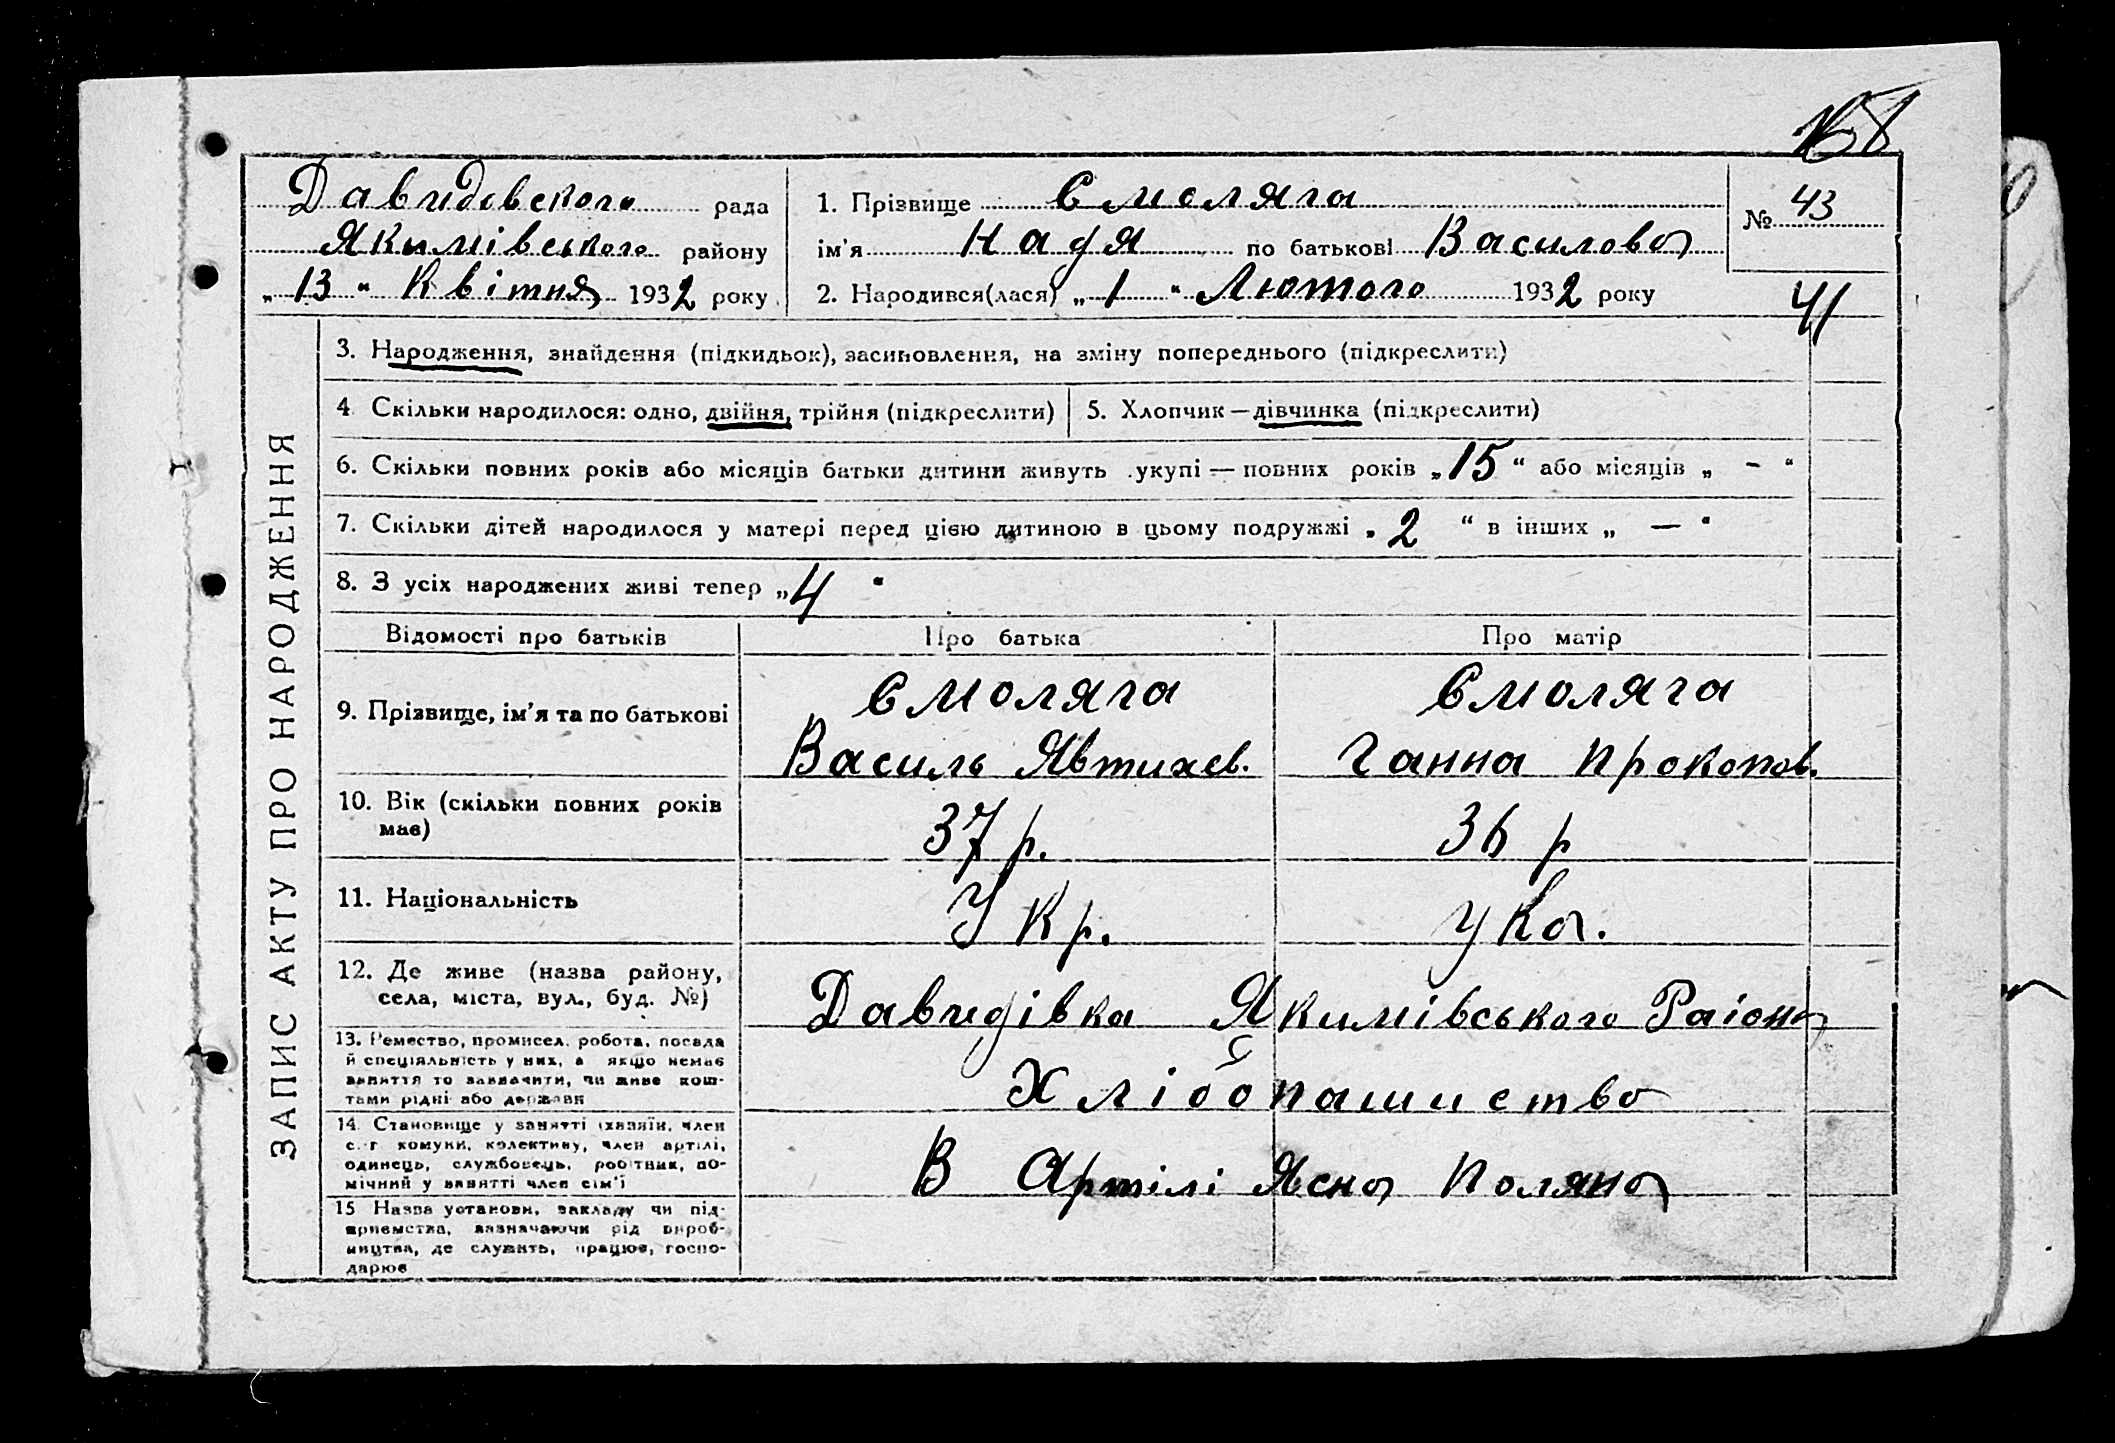 Давидовского рада
Якимівського району
„13“ Квітня 1932 року
1. Прізвище Смоляга
ім'я Надя по батькові Василова
2. Народився(лася) „1“ Лютого 1932 року
№ 43
41
ЗАПИС АКТУ ПРО НАРОДЖЕННЯ
3. Народження, знайдення (підкидьок), засиновлення, на зміну попереднього (підкреслити)
4. Скільки народилося: одно, двійня, трійня (підкреслити)
5. Хлопчик — дівчинка (підкреслити)
6. Скільки повних років або місяців батьки дитини живуть укупі — повних років „15“ або місяців „ - “
7. Скільки дітей народилося у матері перед цією дитиною в цьому подружжі „2“ в інших „ — “
8. З усіх народжених живі тепер „4“
Відомості про батьків Про батька Про матір
9. Прізвище, ім'я та по батькові
Смоляга
Василь Явтихев.
Смоляга
Ганна Прокопов.
10. Вік (скільки повних років
має)
37 р.
36 р
11. Національність
Укр.
Ука.
12. Де живе (назва району,
села, міста, вул., буд. №)
Давидівка Якимівського Раіона
13. Ремество, промисел, робота, посада
й спеціяльність у них, а якщо немає
заняття то зазначити, чи живе кош-
тами рідні або держави
Хлібопашиство
14. Становище у занятті (хазяїн, член
с.-г. комуни, колективу, член артілі,
одинець, службовець, робітник, по-
мічний у занятті член сім'ї
В Артілі Ясна Поляна
15 Назва установи, закладу чи під-
приємства, зазначаючи рід вироб-
ництва, де служить, працює, госпо-
дарює